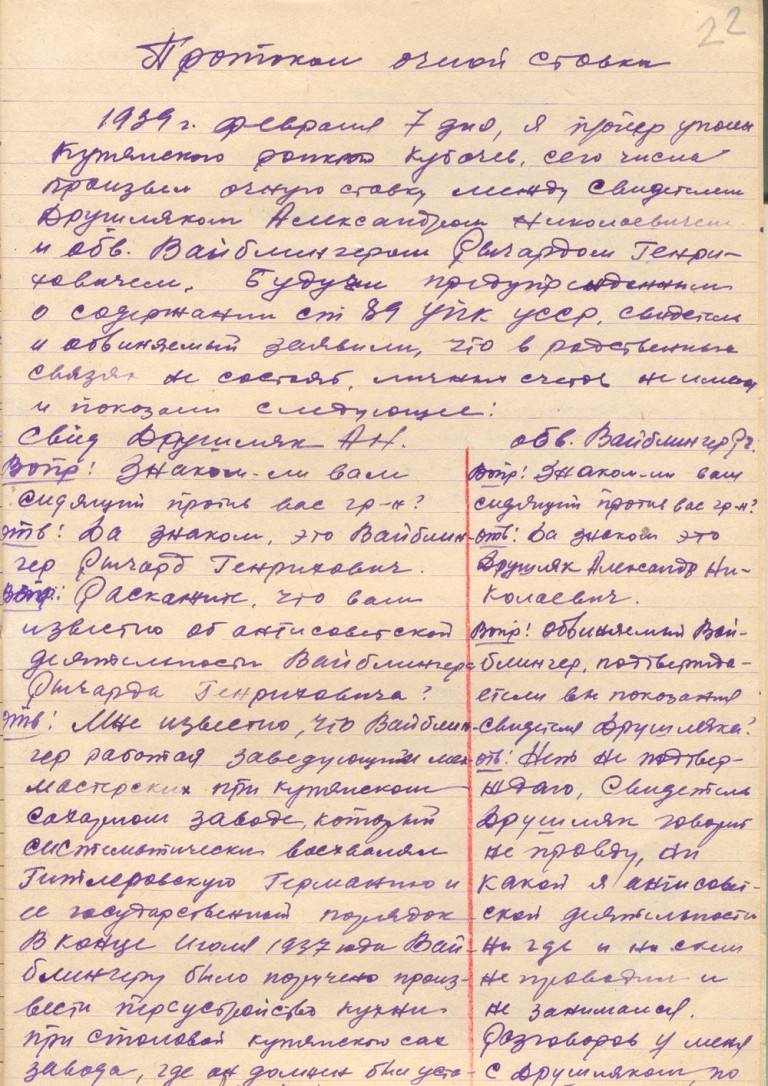 22
Протокол очной ставки
1939 г. февраля 7 дня, я
Кубочев, сего числа
произвел очную ставку между свидетелем
Друшляком Александром Николаевичем
и обв. Вайблингером Рычардом Генри-
ховичем. Будучи предупрежденными
о содержании ст 89 УПК УССР, свидетель
и обвиняемый заявили, что в родственных
связях не состоят, личных счетов не имеют
и показали следующее:
Свид Друшляк А.Н.
Вопр: Знаком-ли вам
сидящий против вас гр-н?
Отв: Да знаком, это Вайблин-
гер Рычард Генрихович.
Вопр: Раскажите, что вам
известно об антисоветской
деятельности Вайблингера
Рычарда Генриховича?
Отв: Мне известно, что Вайблин-
гер работая заведующим мех
мастерских при купянском
сахарном заводе, который
систематически восхвалял
Гитлеровскую Германию и
ее государственный порядок
В конце Июля 1937 года Вай-
блингеру было поручено произ-
вести переустройство кухни
при столовой купянского сах
завода, где он должен был уста-
обв. Вайблингер Р.Г.
Вопр: Знаком-ли вам
сидящий против вас гр-н?
Отв: Да знаком это
Друшляк Александр Ни-
колаевич.
Вопр: Обвиняемый Вай-
блингер, подтвержда-
ете ли вы показания
свидетеля Друшляка?
Отв: Нет не подтвер-
ждаю, Свидетель
Друшляк говорит
не правду, ни
какой я антисовет-
ской деятельности
ни где и ни с кем
не проводил и
не занимался.
Разговоров у меня
с Друшляком по